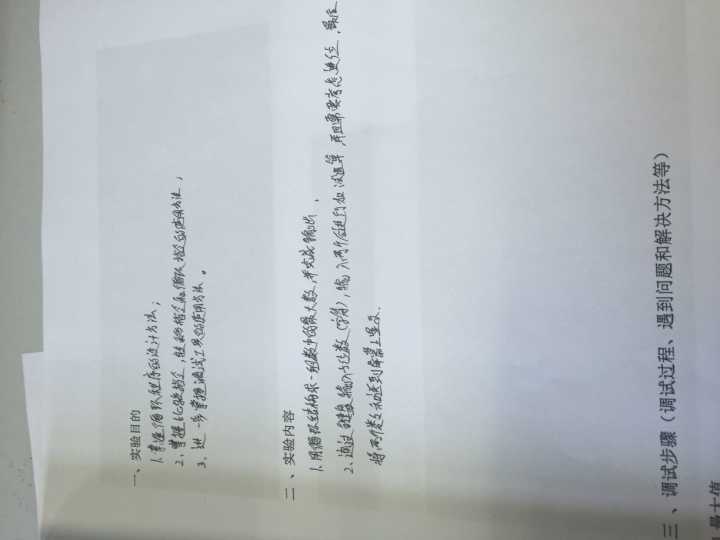 一、实验目的
1. 掌握循环程序的设计方法；
2. 掌握比较指令，转移指令和循环指令的使用方法；
3. 进一步掌握调试工具的使用方法。
二、实验内容
1. 用循环结构求一组数中的最大数，并完成输出。
2. 通过键盘输入位数（字符），输入两个后进行加法运算，并且需要考虑进位，最后
将两个数之和送到屏幕上显示.
三、调试步骤（调试过程、遇到问题和解决方法等）
最大值